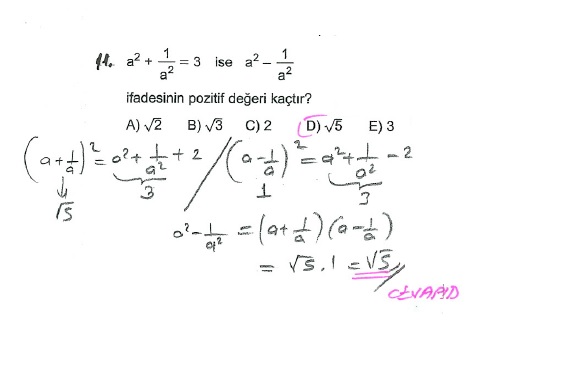 11. a² + 1/a² = 3 ise a² - 1/a²
ifadesinin pozitif değeri kaçtır?
A) √2 B) √3 C) 2 D) √5 E) 3
(a + 1/a)² = a² + 1/a² + 2 / (a - 1/a)² = a² + 1/a² - 2
↓ √5 3 1 3
a² - 1/a² = (a + 1/a)(a - 1/a)
= √5 . 1 = √5
CEVAP D